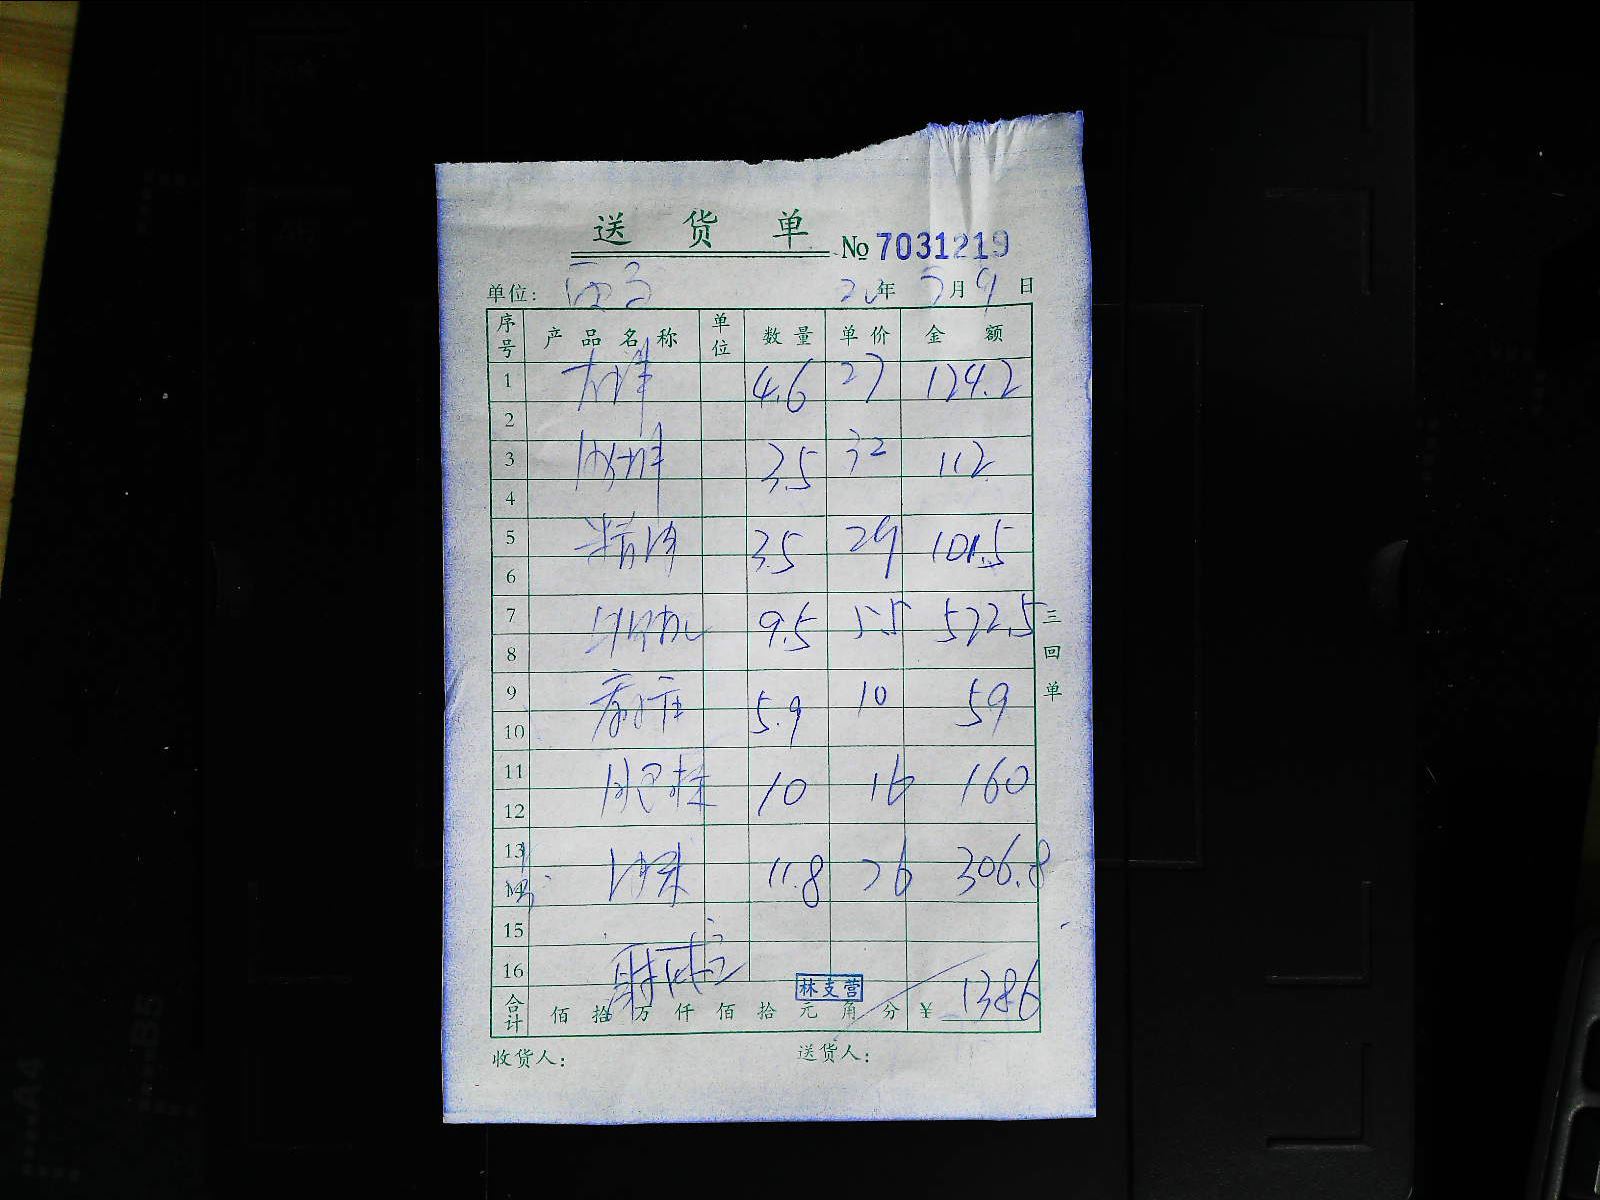 送货单
№ 7031219
单位：
20年5月9日
序号 产品名称 单位 数量 单价 金额
1 4.6 27 124.2
2
3 3.5 32 112
4
5 精肉 3.5 29 101.5
6
7 9.5 55 522.5
8
9 5.9 10 59
10
11 10 16 160
12
13 11.8 26 306.8
14
15
16
林支营
合计 佰拾万仟佰拾元角分 ¥ 1386
收货人： 送货人：
三回单